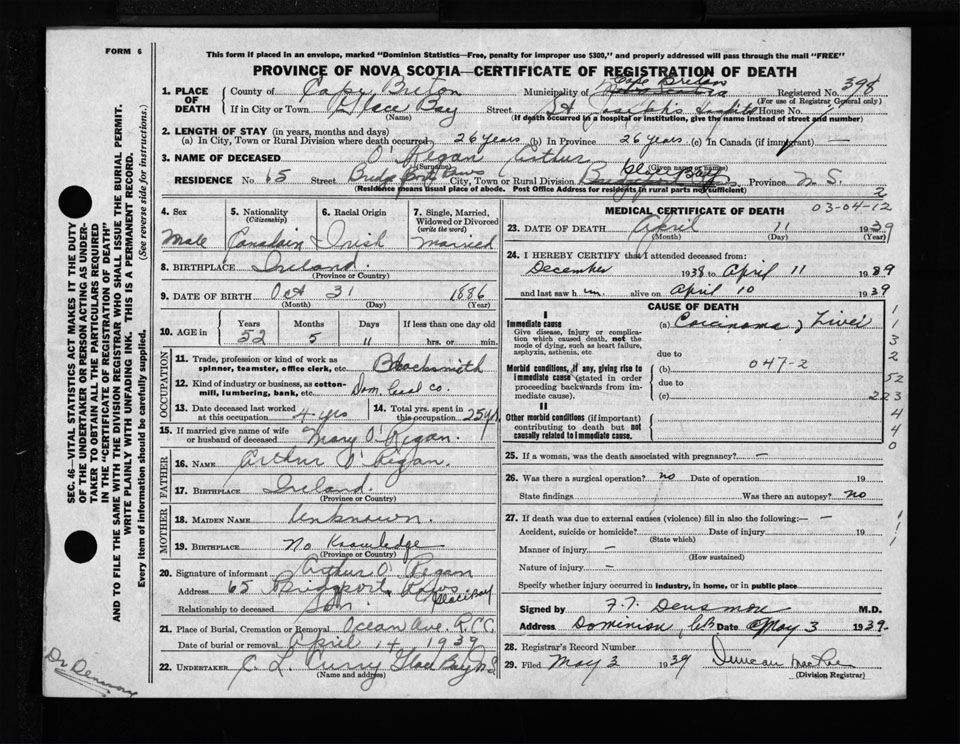 FORM 6
This form if placed in an envelope, marked "Dominion Statistics—Free, penalty for improper use $300," and properly addressed will pass through the mail "FREE"
PROVINCE OF NOVA SCOTIA—CERTIFICATE OF REGISTRATION OF DEATH
1. PLACE OF DEATH
County of Cape Breton Municipality of Cape Breton Registered No. 398
(For use of Registrar General only)
If in City or Town Glace Bay Street St Joseph's Hospital House No.
(Name) (If death occurred in a hospital or institution, give the name instead of street and number)
2. LENGTH OF STAY (in years, months and days)
(a) In City, Town or Rural Division where death occurred 26 years (b) In Province 26 years (c) In Canada (if immigrant) —
3. NAME OF DECEASED O'Regan Arthur
(Surname) (Given name or names)
RESIDENCE No. 65 Street City, Town or Rural Division Glace Bay Province N S.
(Residence means usual place of abode. Post Office Address for residents in rural parts not sufficient) 2
4. Sex Male
5. Nationality (Citizenship) Canadain
6. Racial Origin Irish
7. Single, Married, Widowed or Divorced (write the word) married
8. BIRTHPLACE Ireland.
(Province or Country)
9. DATE OF BIRTH Oct 31 1886
(Month) (Day) (Year)
10. AGE in Years 52 Months 5 Days 11 If less than one day old hrs. or min.
OCCUPATION
11. Trade, profession or kind of work as spinner, teamster, office clerk, etc. Blacksmith
12. Kind of industry or business, as cotton-mill, lumbering, bank, etc. Dom. Coal Co.
13. Date deceased last worked at this occupation 4 yrs
14. Total yrs. spent in this occupation 25 yrs
15. If married give name of wife or husband of deceased Mary O'Regan.
FATHER
16. NAME Arthur O'Regan.
17. BIRTHPLACE Ireland.
(Province or Country)
MOTHER
18. MAIDEN NAME Unknown.
19. BIRTHPLACE No Knowledge
(Province or Country)
20. Signature of informant Arthur O'Regan
Address 65 Bridgeport Glace Bay
Relationship to deceased Son
21. Place of Burial, Cremation or Removal Ocean Ave. R.C.C.
Date of burial or removal April 14 1939
22. UNDERTAKER C. L. Curry Glace Bay N S
(Name and address)
MEDICAL CERTIFICATE OF DEATH 03-04-12
23. DATE OF DEATH April 11 1939
(Month) (Day) (Year)
24. I HEREBY CERTIFY that I attended deceased from
December 1938 to April 11 1939
and last saw him alive on April 10 1939
CAUSE OF DEATH
I
Immediate cause (a) Carcinoma, Liver
Give disease, injury or complication which caused death, not the mode of dying, such as heart failure, asphyxia, asthenia, etc
due to
Morbid conditions, if any, giving rise to immediate cause (stated in order proceeding backwards from immediate cause).
(b) 047-2
due to
(c)
II
Other morbid conditions (if important) contributing to death but not causally related to immediate cause.
1
1
3
2
52
223
4
4
0
25. If a woman, was the death associated with pregnancy? —
26. Was there a surgical operation? no Date of operation 19
State findings Was there an autopsy? no
27. If death was due to external causes (violence) fill in also the following:— —
Accident, suicide or homicide? Date of injury 19
(State which)
Manner of injury —
(How sustained)
Nature of injury —
Specify whether injury occurred in industry, in home, or in public place
Signed by F. T. Densmore M.D.
Address Dominion, CB Date May 3 1939.
28. Registrar's Record Number
29. Filed May 3 1939 Duncan MacRae
(Division Registrar)
SEC. 46—VITAL STATISTICS ACT MAKES IT THE DUTY
OF THE UNDERTAKER OR PERSON ACTING AS UNDER-
TAKER TO OBTAIN ALL THE PARTICULARS REQUIRED
IN THE "CERTIFICATE OF REGISTRATION OF DEATH"
AND TO FILE THE SAME WITH THE DIVISION REGISTRAR WHO SHALL ISSUE THE BURIAL PERMIT.
WRITE PLAINLY WITH UNFADING INK. THIS IS A PERMANENT RECORD.
Every item of information should be carefully supplied. (See reverse side for instructions.)
Dr Densmore